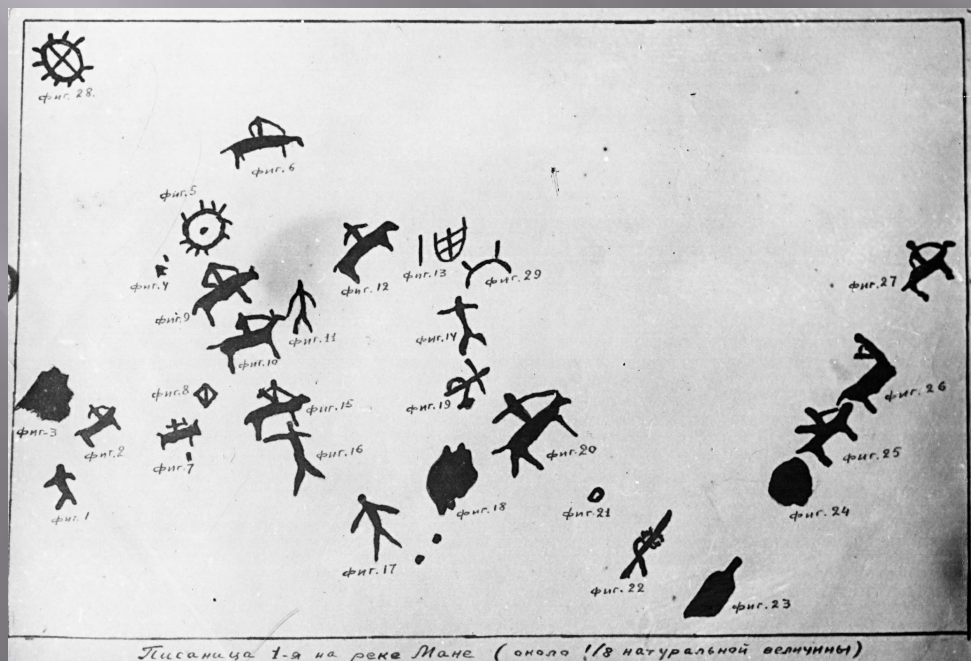 фиг. 28.
фиг. 6
фиг. 5
фиг. 4
фиг. 9
фиг. 12
фиг. 13
фиг. 29
фиг. 27
фиг. 10
фиг. 11
фиг. 14
фиг. 8
фиг. 15
фиг. 19
фиг. 26
фиг. 3
фиг. 2
фиг. 7
фиг. 16
фиг. 20
фиг. 25
фиг. 1
фиг. 18
фиг. 21
фиг. 24
фиг. 17
фиг. 22
фиг. 23
Писаница 1-я на реке Мане (около 1/8 натуральной величины)